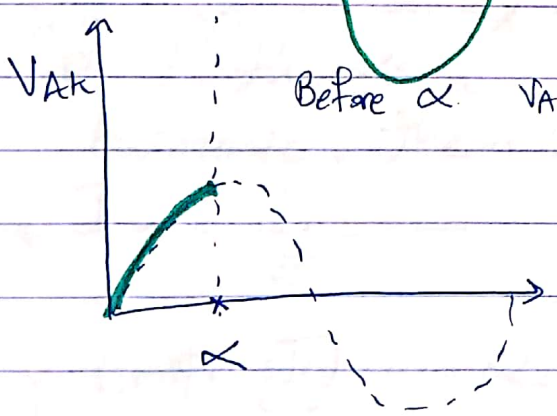 VAK
Before α. VA
α